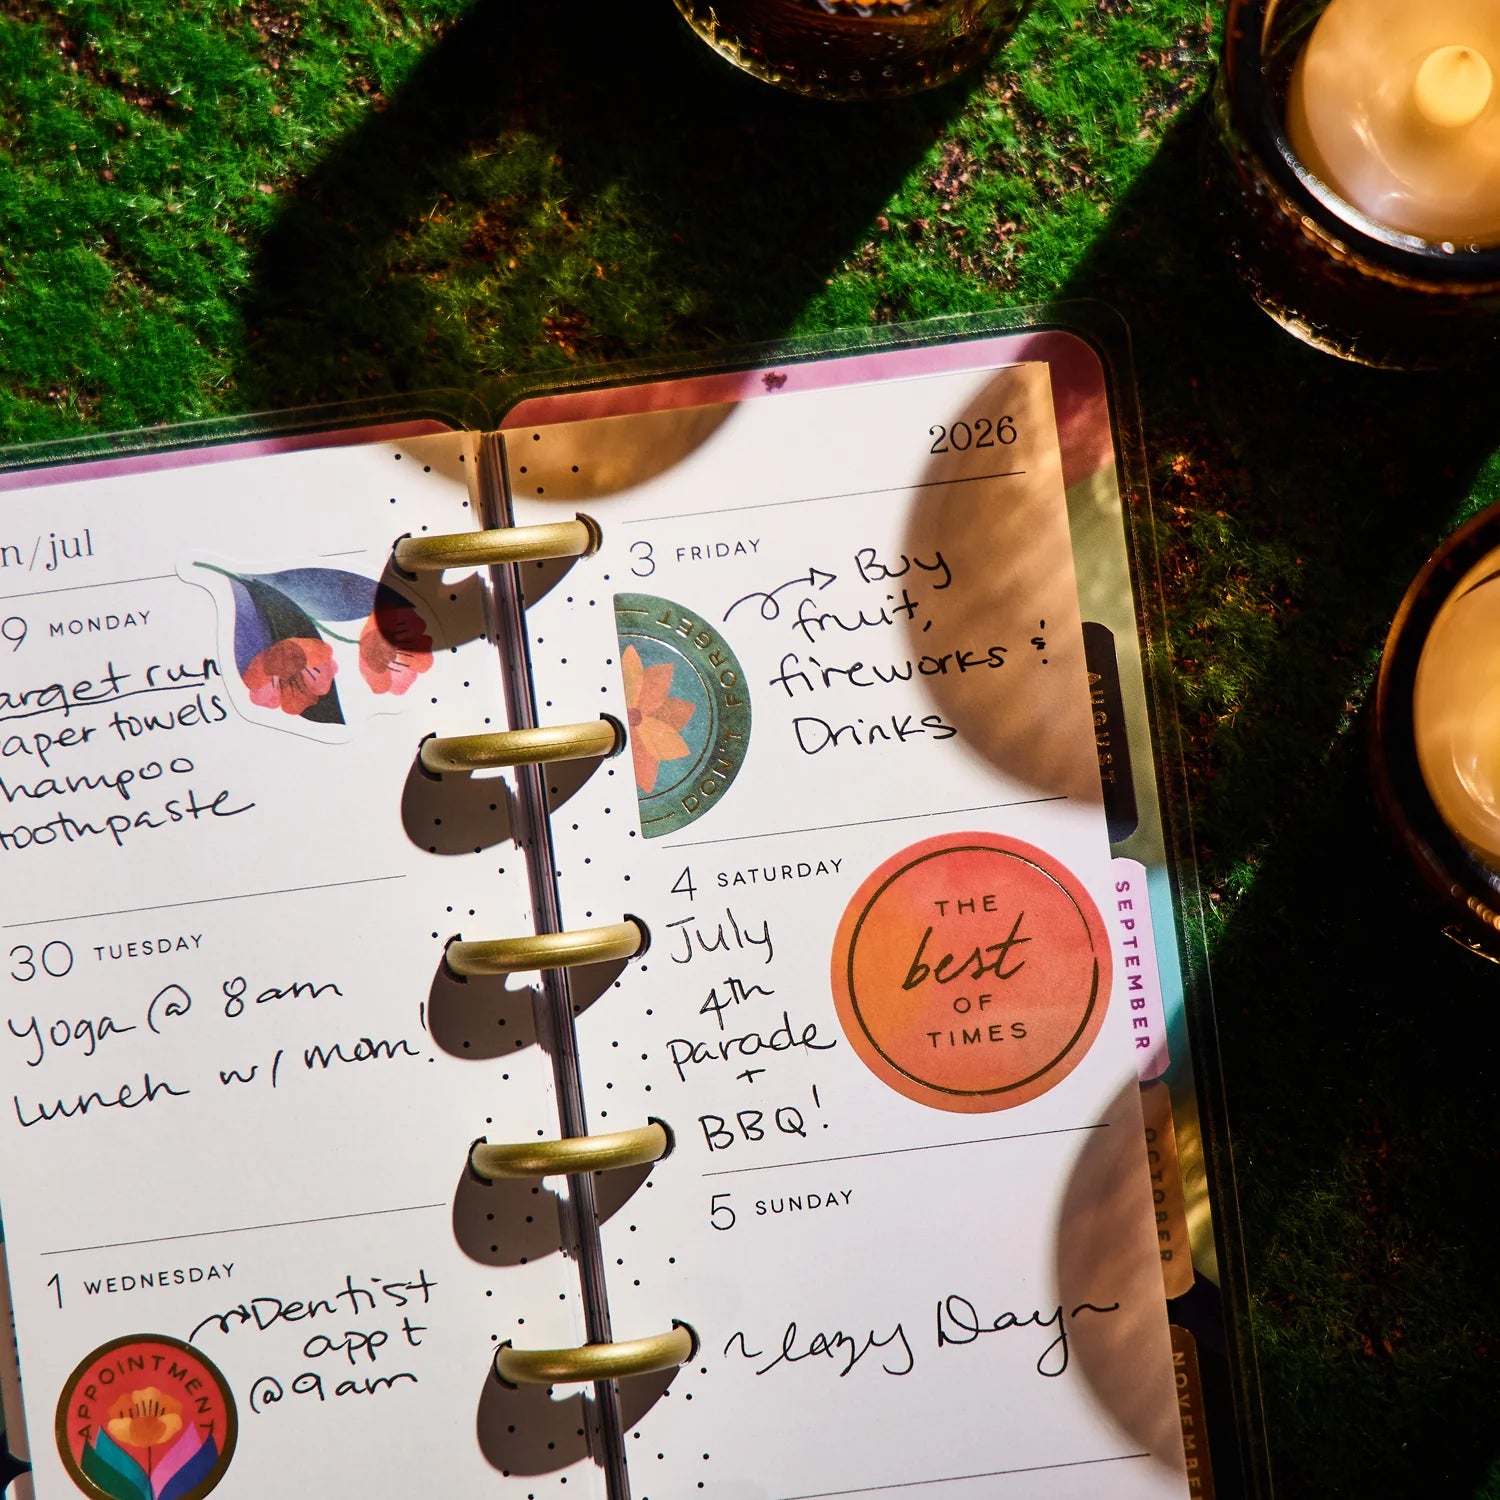 n/jul
9 MONDAY
arget run
aper towels
hampoo
toothpaste
30 TUESDAY
Yoga @ 8am
Lunch w/ mom!
1 WEDNESDAY
Dentist
appt
@9am
APPOINTMENT
2026
3 FRIDAY
DON'T FORGET
Buy
fruit,
fireworks &
Drinks
4 SATURDAY
July
4th
Parade
+
BBQ!
THE
best
OF
TIMES
5 SUNDAY
~Lazy Day~
AUGUST
SEPTEMBER
OCTOBER
NOVEMBE